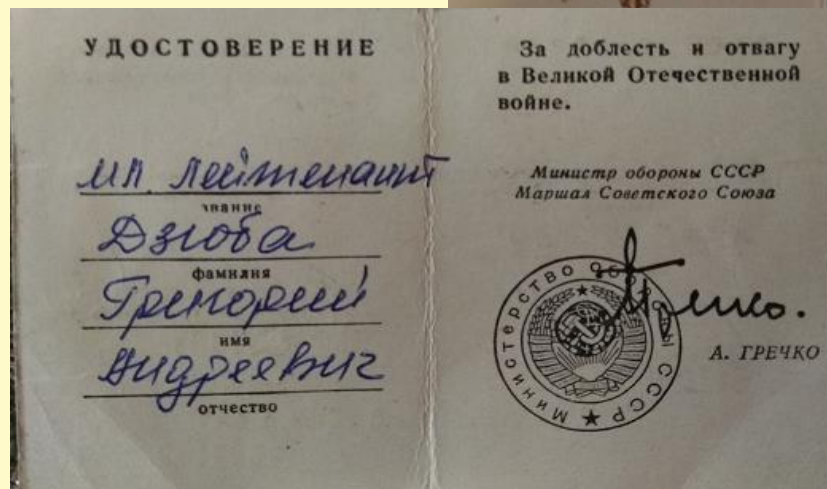 УДОСТОВЕРЕНИЕ
мл. лейтенант
звание
Дзюба
фамилия
Григорий
имя
Андреевич
отчество
За доблесть и отвагу
в Великой Отечественной
войне.
Министр обороны СССР
Маршал Советского Союза
МИНИСТЕРСТВО ОБОРОНЫ СССР
Гречко.
А. ГРЕЧКО